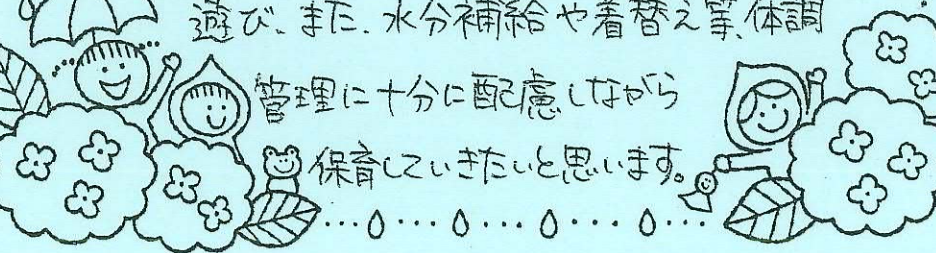 遊び、また、水分補給や着替え等、体調
管理に十分に配慮しながら
保育していきたいと思います。